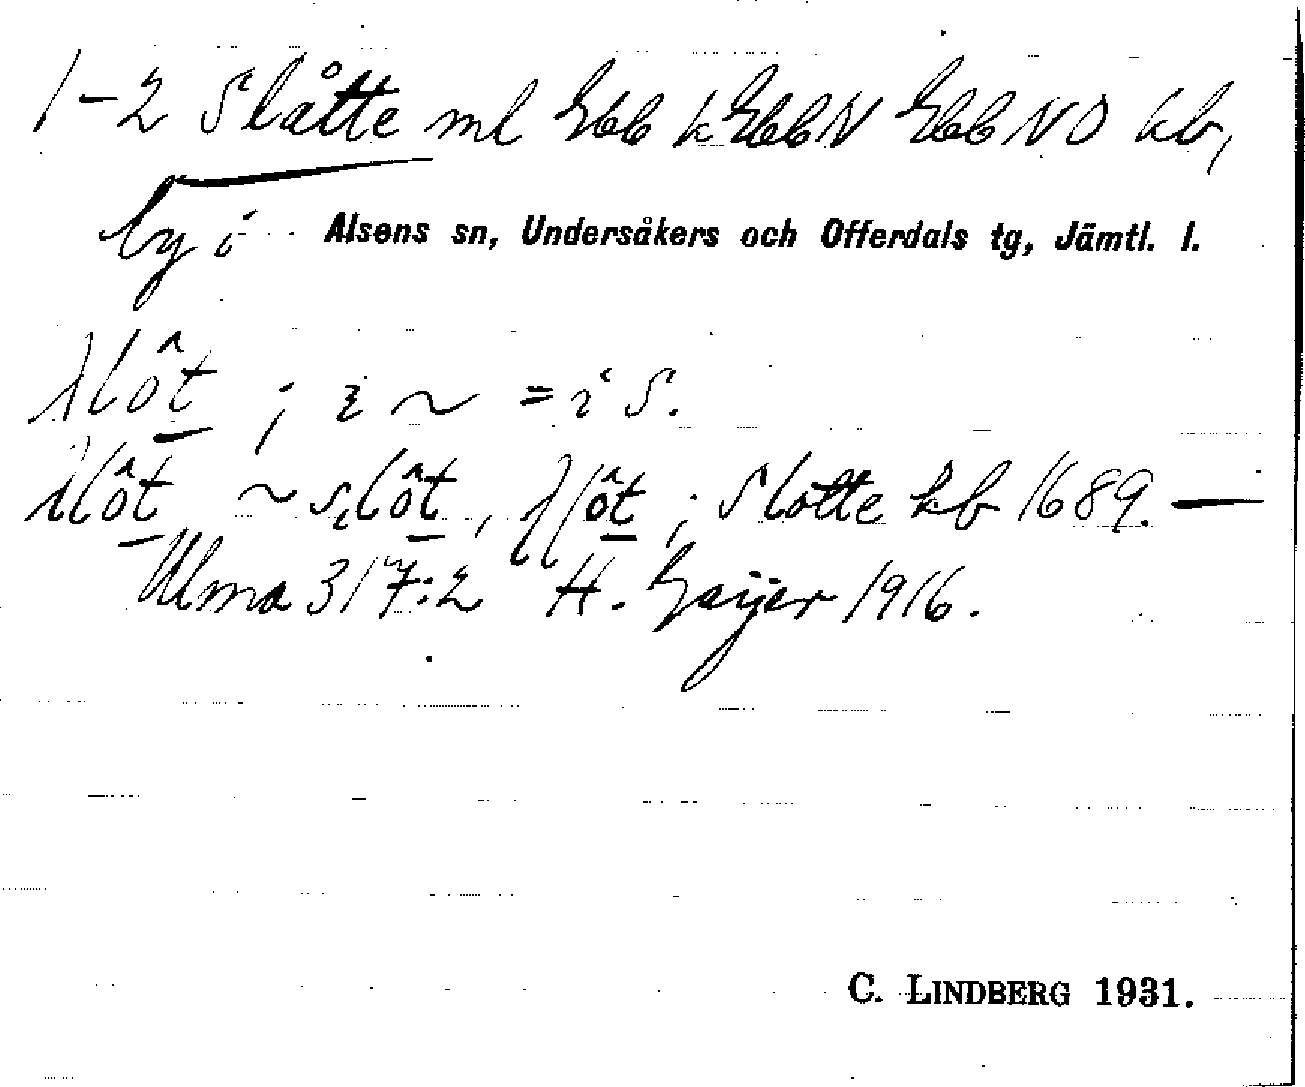 1-2 Slåtte ml Gbb k GbbN GbbNO kb,
by i Alsens sn, Undersåkers och Offerdals tg, Jämtl. l.
slôt ; i ~ = i S.
slôt ~ slôt, ; Slotte kb 1689. —
Ulma 317:2 H. Geijer 1916.
C. LINDBERG 1931.